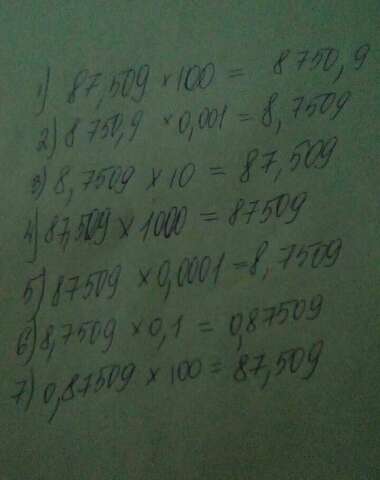 1) 87,509 × 100 = 8750,9
2) 8750,9 × 0,001 = 8,7509
3) 8,7509 × 10 = 87,509
4) 87,509 × 1000 = 87509
5) 87509 × 0,0001 = 8,7509
6) 8,7509 × 0,1 = 0,87509
7) 0,87509 × 100 = 87,509